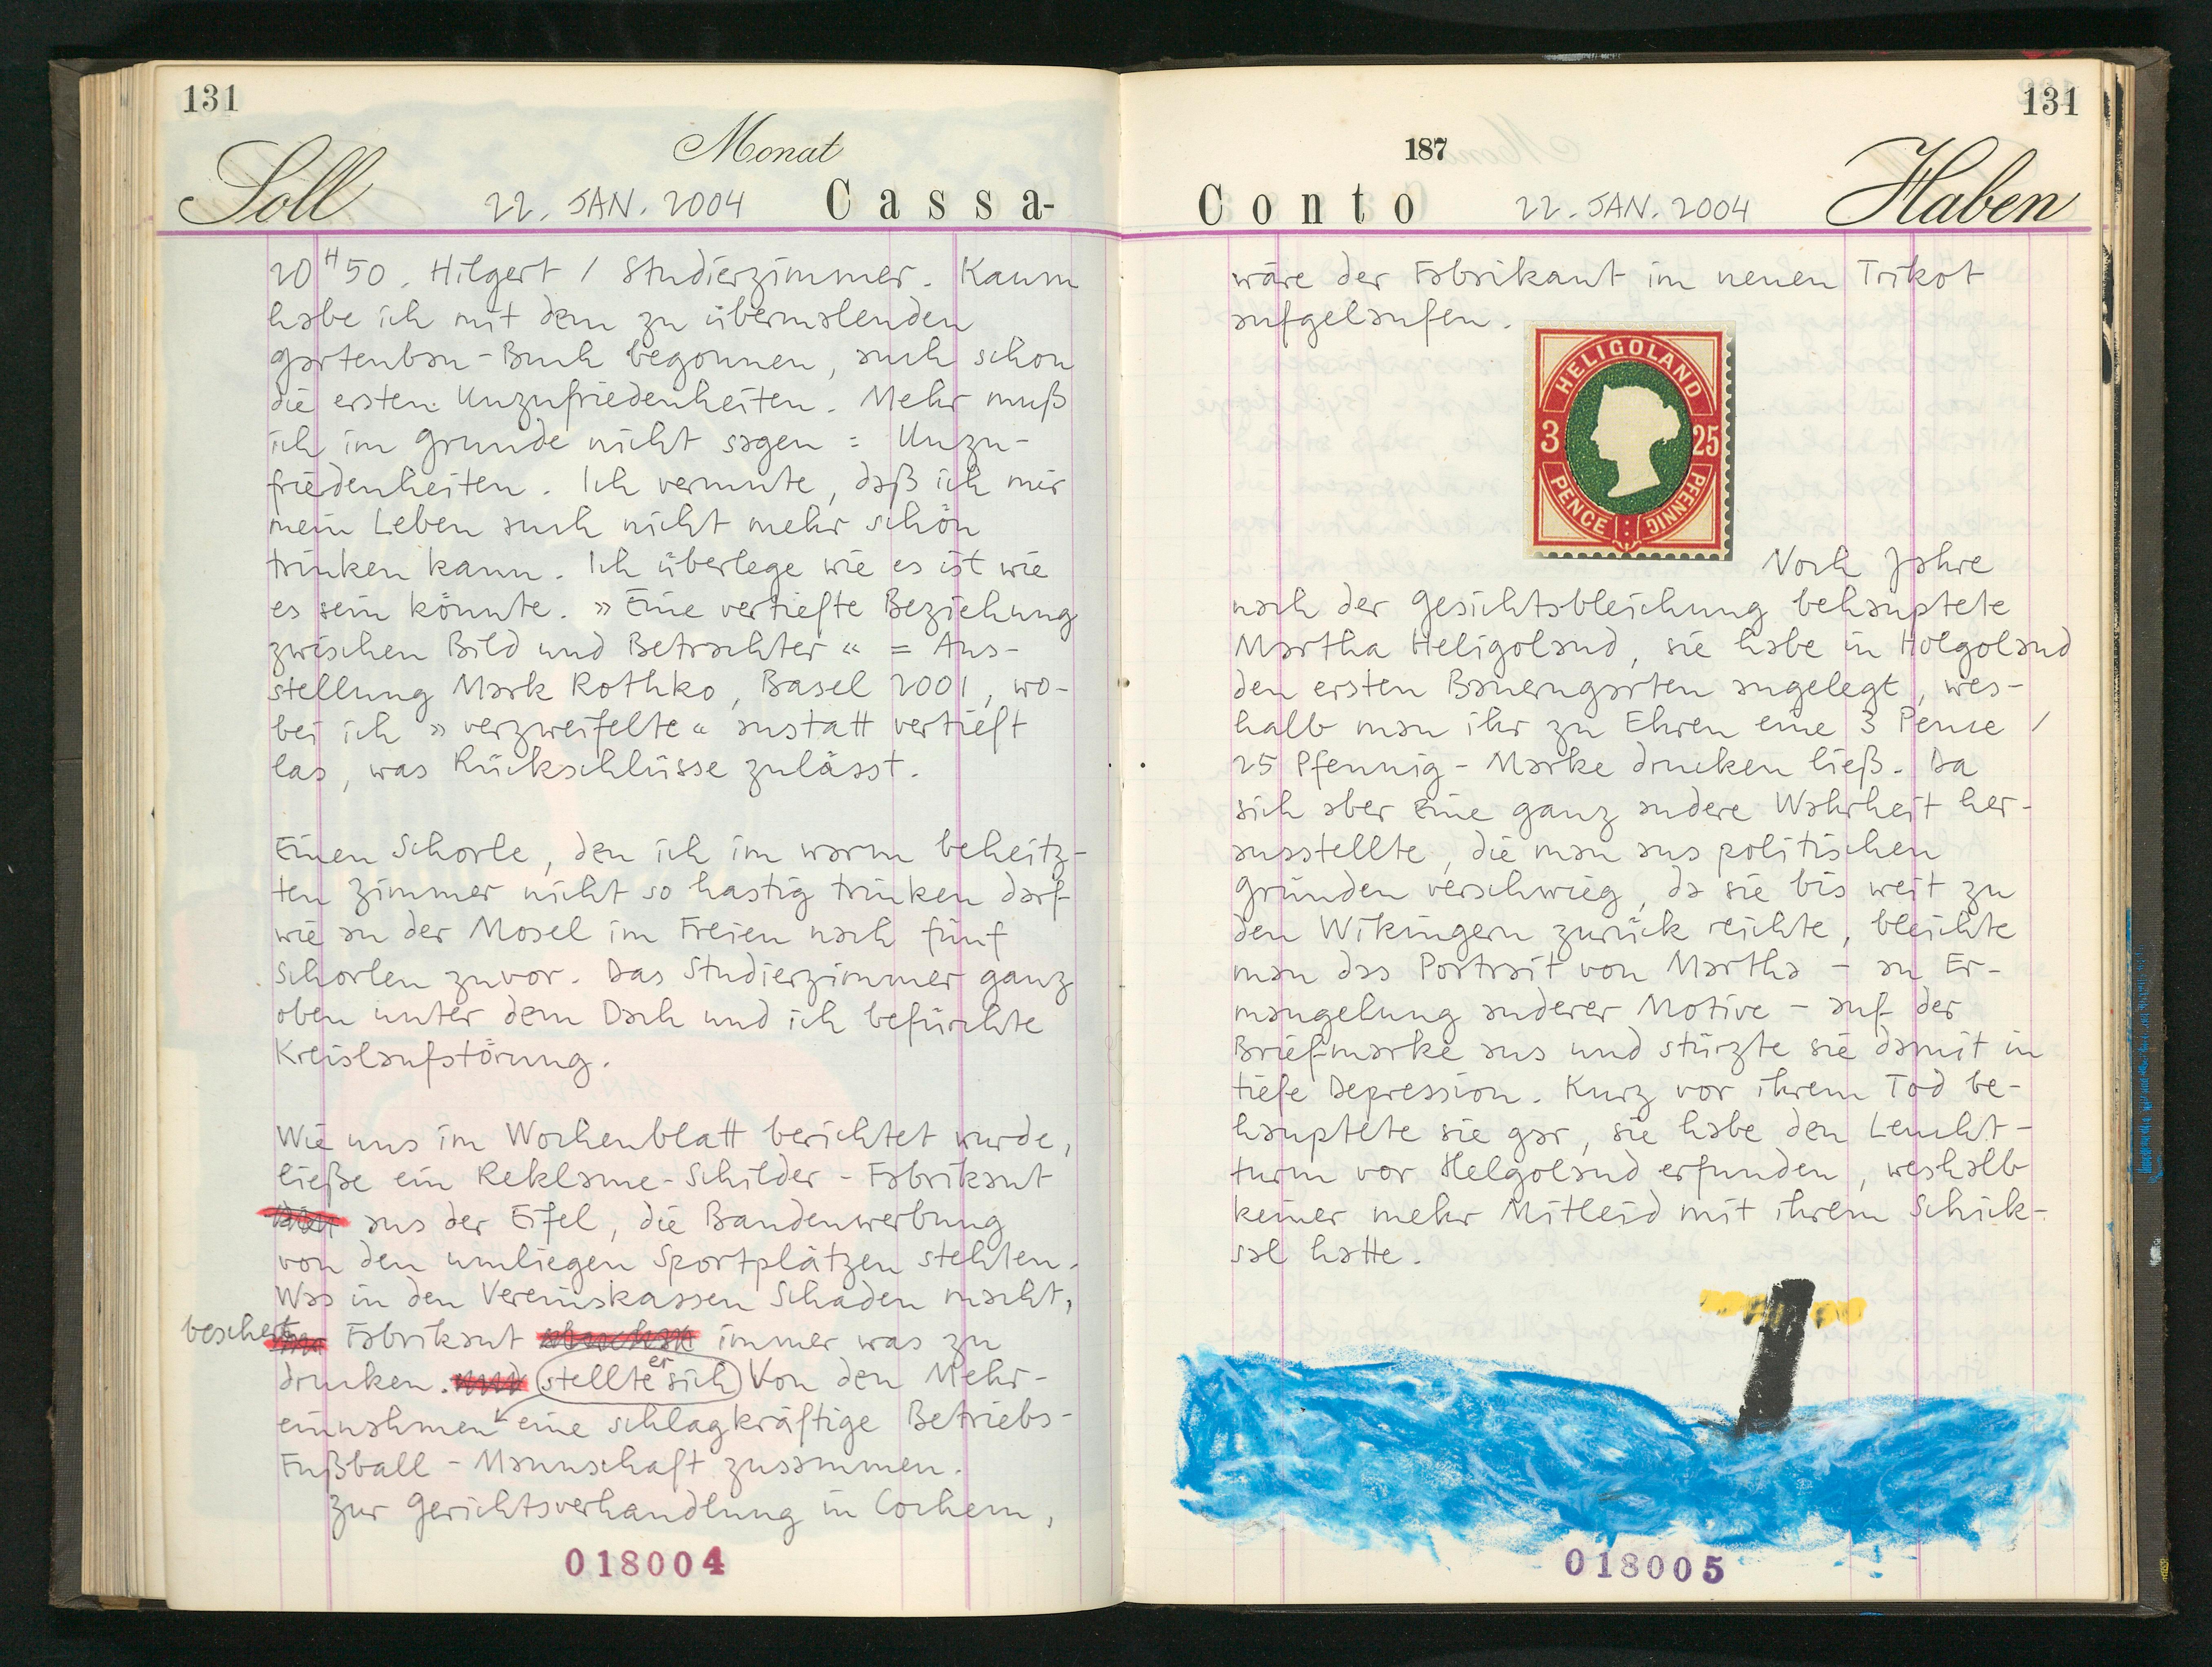 131
Monat
Soll 22. JAN. 2004 Cassa-
20 H 50. Hilgert / Studierzimmer. Kaum
habe ich mit dem zu übermalenden
Gartenbau-Buch begonnen, auch schon
die ersten Unzufriedenheiten. Mehr muß
ich im Grunde nicht sagen = Unzu-
friedenheiten. Ich vermute, daß ich mir
mein Leben auch nicht mehr schön
trinken kann. Ich überlege wie es ist wie
es sein könnte. »Eine vertiefte Beziehung
zwischen Bild und Betrachter« = Aus-
stellung Mark Rothko, Basel 2001, wo-
bei ich »verzweifelte« anstatt vertieft
las, was Rückschlüsse zulässt.
Einen Schorle, den ich im warm beheitz-
ten Zimmer nicht so hastig trinken darf
wie an der Mosel im Freien nach fünf
Schorlen zuvor. Das Studierzimmer ganz
oben unter dem Dach und ich befürchte
Kreislaufstörung.
Wie uns im Wochenblatt berichtet wurde,
ließe ein Reklame-Schilder-Fabrikant
aus der Eifel, die Bandenwerbung
von den umliegen Sportplätzen stehlen.
Was in den Vereinskassen Schaden macht,
beschert Fabrikant immer was zu
drucken. und stellte er sich Von den Mehr-
einnahmen eine schlagkräftige Betriebs-
Fußball-Mannschaft zusammen.
Zur Gerichtsverhandlung in Cochem,
018004
131
187
Conto 22. JAN. 2004 Haben
wäre der Fabrikant im neuen Trikot
aufgelaufen.
HELIGOLAND
3 25
PENCE : PFENNIG
Noch Jahre
nach der Gesichtsbleichung behauptete
Martha Heligoland, sie habe in Holgoland
den ersten Bauerngarten angelegt, wes-
halb man ihr zu Ehren eine 3 Pence /
25 Pfennig-Marke drucken ließ. Da
sich aber eine ganz andere Wahrheit her-
ausstellte, die man aus politischen
Gründen verschwieg, da sie bis weit zu
den Wikingern zurück reichte, bleichte
man das Portrait von Martha – an Er-
mangelung anderer Motive – auf der
Briefmarke aus und stürzte sie damit in
tiefe Depression. Kurz vor ihrem Tod be-
hauptete sie gar, sie habe den Leucht-
turm vor Helgoland erfunden, weshalb
keiner mehr Mitleid mit ihrem Schick-
sal hatte.
018005